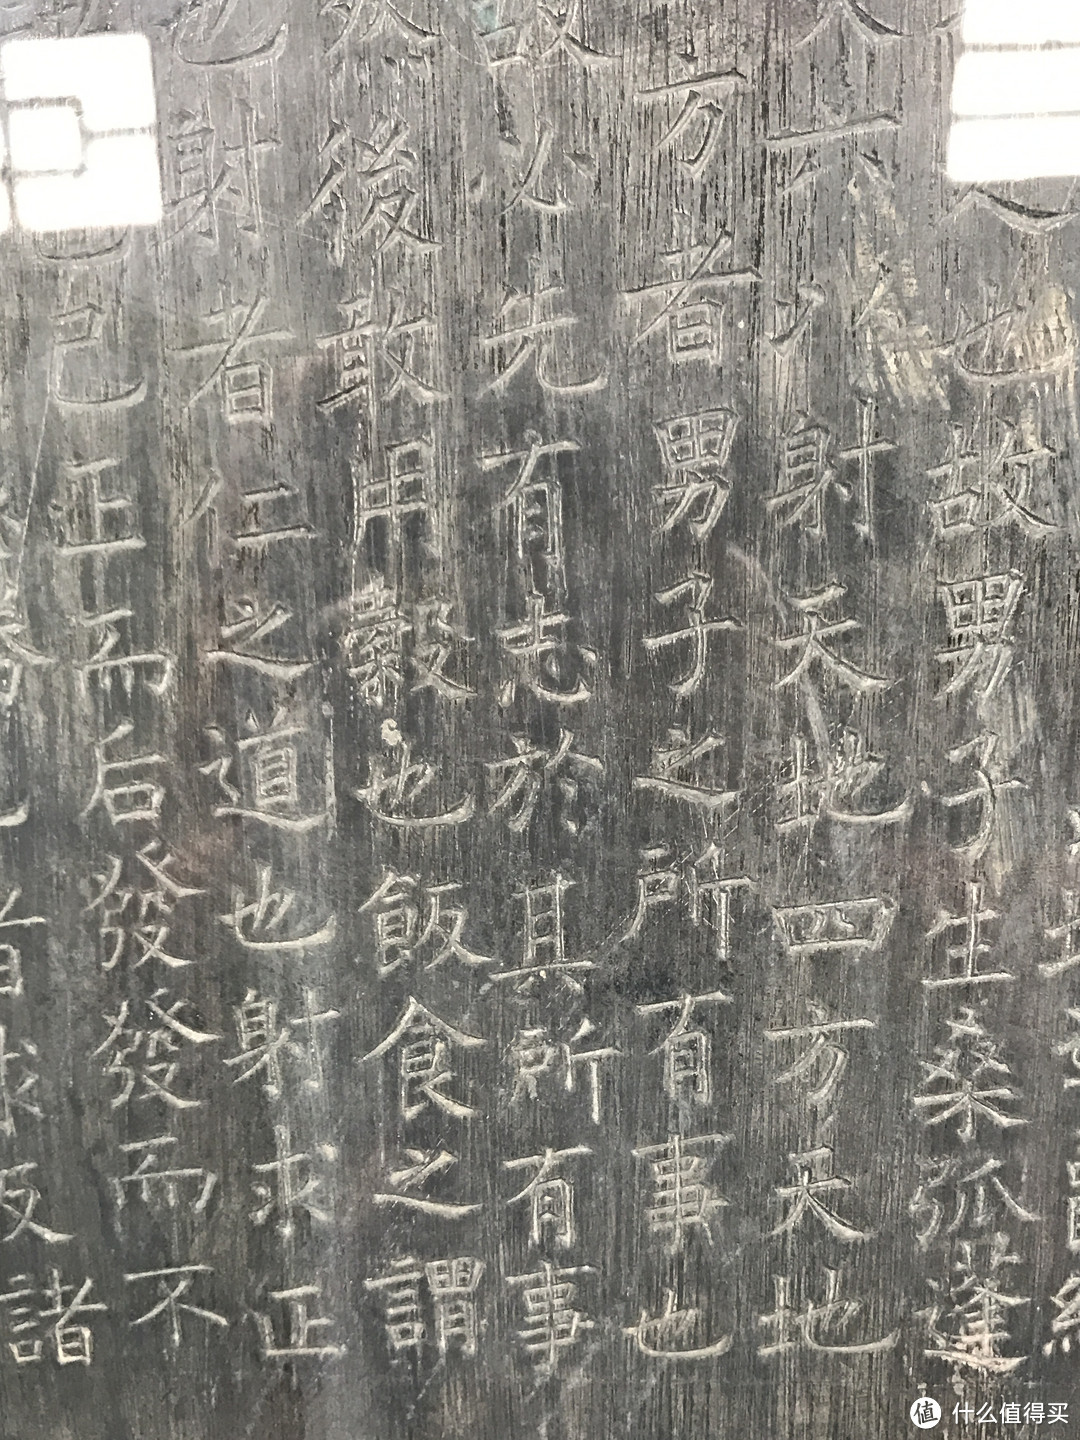 也故男子生桑弧蓬
六以射天地四方天地
方者男子之所有事也
故必先有志於其所有事
然後敢用穀也飯食之謂
也射者仁之道也射求正
己正而后發發而不
諸
值 什么值得买